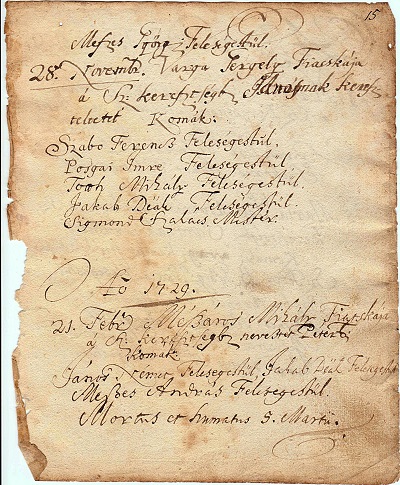 15
Meszes Györg Feleségestül.
28. Novembr. Varga Gergely Fiacskája
á Sz: keresztségb Jánosnak keresz
teltetet Komák:
Szabo Ferencz Feleségestül.
Posgai Imre Feleségestül
Toth Mihály Feleségestül.
Jakab Deák Feleségestül.
Sigmond Szakács Mester.
Ao 1729.
21. Febr Mészáros Mihály Fiacskája
á Sz: keresztségb neveztet Péternek
Komák
János Nemet Feleségestül, Jakab Deák Feleségestül
Meszes András Feleségestül.
Mortus et humatus 5. Martii.